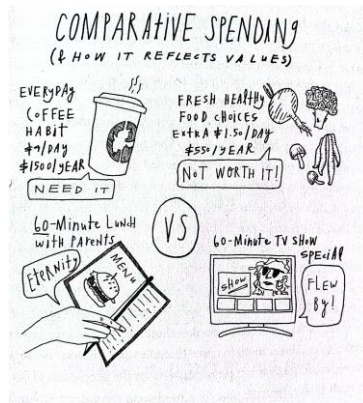 COMPARATIVE SPENDING
(& HOW IT REFLECTS VALUES)
EVERYDAY
COFFEE
HABIT
$4/DAY
$1500/YEAR
NEED IT
FRESH HEALTHY
FOOD CHOICES
EXTRA $1.50/DAY
$550/YEAR
NOT WORTH IT!
VS
60-MINUTE LUNCH
WITH PARENTS
ETERNITY
MENU
60-MINUTE TV SHOW
SPECIAL
SHOW
FLEW
BY!